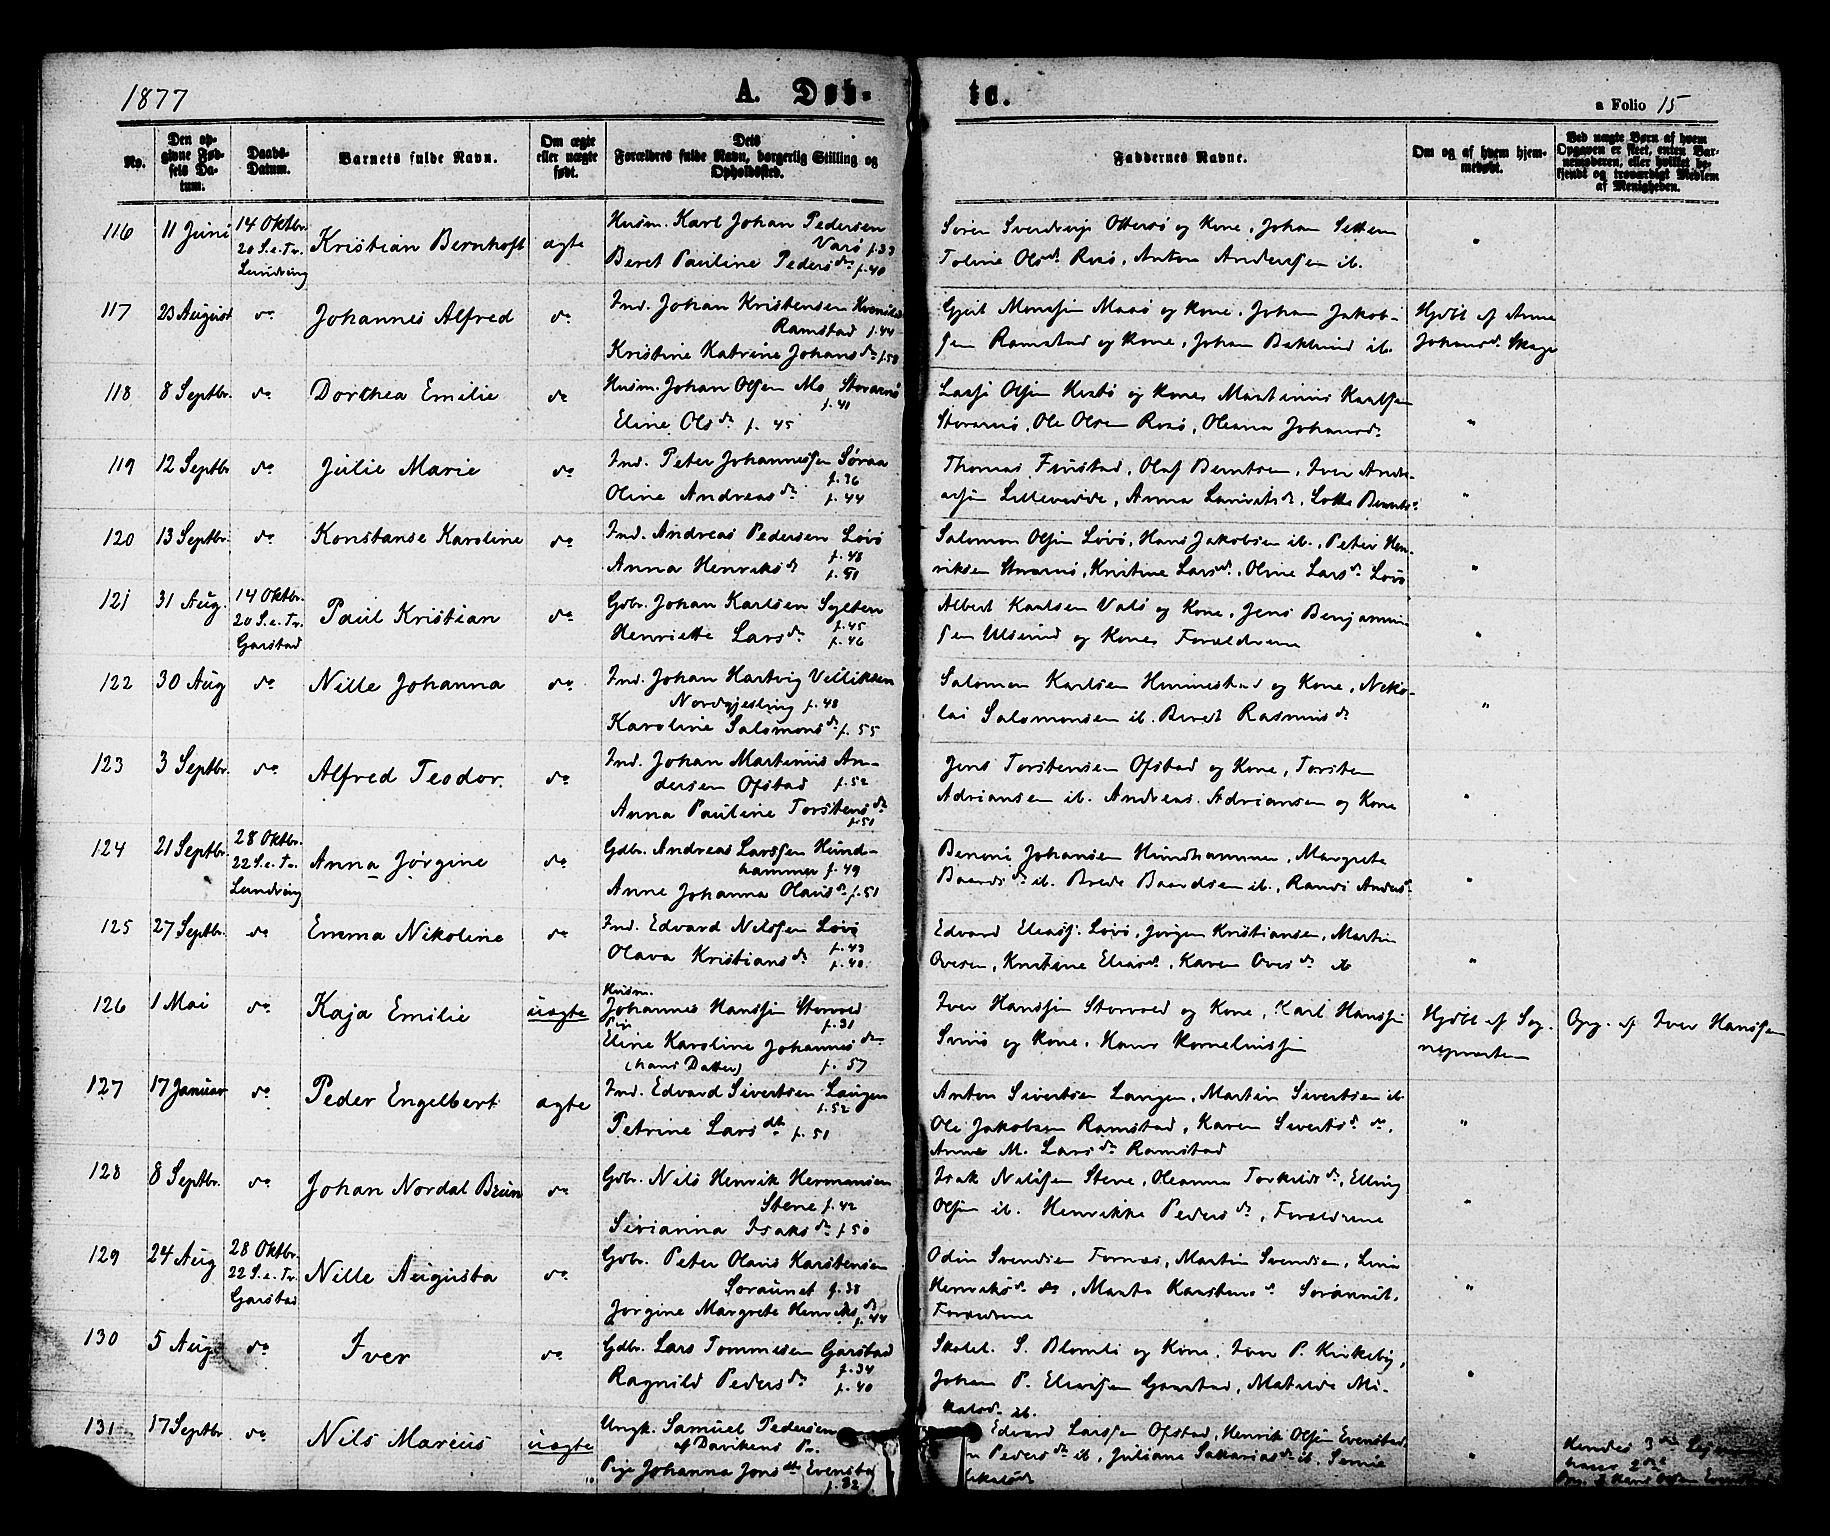 1877
A. Døb-
te.
a Folio 15
No.
Den op-
givne Fød-
sels Da-
tum.
Daabs-
Datum.
Barnets fulde Navn.
Om ægte
eller uægte
født.
Dets
Forældres fulde Navn, borgerlig Stilling og
Opholdssted.
Faddernes Navne.
Om og af hvem hjem-
medøbt.
Ved uægte Børn af hvem
Opgaven er skeet, enten Bar-
nemoderen, eller hvilket be-
kjendt og troværdigt Medlem
af Menigheden.
116
11 Juni
14 Oktbr.
20 S.e.Tr.
Lundring
Kristian Bernhoft
ægte
Husm. Karl Johan Pedersen
Varø f.33
Beret Pauline Peders dr f.40
Søren Ottersø og Kone, Johan
Toline Olsdr. Rosø, Anton Anderssen ib.
"
117
23 August
do
Johannes Alfred
do
Ind. Johan Kristensen
Ramstad f.44
Kristine Katrine Johans dr f.50
Gjert Monssen og Kone, Johan Jakob-
sen Ramstad og Kone, Johan Beklund ib.
Hjdbt af Anne
Johansdr. Skage
118
8 Septbr.
do
Dorthea Emilie
do
Husm. Johan Olsen Mo Storarnø
f.41
Eline Ols dr f.45
Lasse Olsen og Kone Martinus Karlsen
Storarnø, Ole Olsen Rosø, Oleana Johansdr.
"
119
12 Septbr
do
Julie Marie
do
Ind. Peter Johannessen Søraa
f.36
Oline Andreas dr f.44
Thomas Finstad, Olaf Berntsen, Iver Andre-
assen, Anna, Lotte Berntsdr.
"
120
13 Septbr.
do
Konstanse Karoline
do
Ind. Andreas Pedersen Løvø
f.48
Anna Henriks dr f.51
Salomon Olsen Løvø, Hans Jakobsen ib., Peter Hen-
riksen Storarnø, Kristine Larsdr., Oline Lars dr Løvø
"
121
31 Aug.
14 Oktbr.
20 S.e.Tr.
Garstad
Paul Kristian
do
Gdbr. Johan Karlsen Sylten
f.45
Henriette Lars dr f.46
Albert Karlsen Valø og Kone, Jens Benjamin-
sen Ulsund og Kone, Forældrene
"
122
30 Aug
do
Nille Johanna
do
Ind. Johan Hartvig Villiksen
Nordgjesling f.48
Karoline Salomons dr f.55
Salomon Karlsen Himmestad og Kone, Niko-
lai Salomonsen ib. Beret Rasmus dr
"
123
3 Septbr.
do
Alfred Teodor.
do
Ind. Johan Martinus An-
dersen Ofstad f.52
Anna Pauline Torstens dr
f.51
Jens Torstensen Ofstad og Kone, Torsten
Adriansen ib. Andreas Adriansen og Kone
"
124
21 Septbr.
28 Oktbr.
22 S.e.Tr.
Lundring
Anna Jørgine
do
Gdbr. Andreas Larssen Hund-
hammer f.49
Anne Johanna Olaus dr f.51
Benoni Johansen Hundhammer, Margrete
Baards dr ib. Brede Baardsen ib., Randi Andersdr.
"
125
27 Septbr.
do
Emma Nikoline
do
Ind. Edvard Nilssen Løvø
f.43
Olava Kristians dr f.40
Edvard Eliass. Løvø, Jørgen Kristiansen, Martin
Ovesen, Kristine Eliasdr., Karen Oves dr ib
"
126
1 Mai
do
Kaja Emilie
uægte
Husm.
Johannes Hanssen Storvold
Pige f.31
Eline Karoline Johannes dr
(hans Datter) f.57
Iver Hanssen Storvold og Kone, Karl Hanssen
Svinø og Kone, Hans Kornelius sen
Hjdbt af Sog-
nepræsten
Opg. af Iver Hanssen
127
17 Januar
do
Peder Engelbert
ægte
Ind. Edvard Sivertsen Laugen
f.52
Petrine Lars dtr f.51
Anton Sivertsen Laugen, Martin Sivertsen ib.
Ole Jakobsen Ramstad, Karen Siverts dr do,
Anne M. Lars dr Ramstad
"
128
8 Septbr.
do
Johan Nordal Brun
do
Gdbr. Nils Henrik Hermansen
Stene f.42
Sirianna Isaks dr f.50
Isak Nilssen Stene, Oleanna Torkilds dr, Elling
Olsen ib. Henrikke Peders dr, Forældrene
"
129
24 Aug
28 Oktbr.
22 S.e.Tr.
Garstad
Nille Augusta
do
Gdbr. Peter Olaus Karstensen
Søraunet f.38
Jørgine Margrete Henriks dr
f.44
Odin Svendsen Fornes, Martin Svendsen, Lina
Henriksdr. do, Marta Karstens dr Søraunet,
Forældrene
"
130
5 Aug
do
Iver
do
Gdbr. Lars Tommesen Garstad
f.34
Ragnild Peders dr f.40
Skolel. S. Blomli og Kone, Iver P. Kirkeby,
Johan P. Eliassen Garstad, Matilde Mi-
kalsdr. ib.
"
131
17 Septbr
do
Nils Marius
uægte
Ungk. Samuel Pedersen
af Davikens Pr.
Pige Johanna Jons dtr Evenstad
f.32
Edvard Larssen Ofstad, Henrik Olsen Evenstad,
Peders dr ib., Juliane Sakarias dr ib.
"
Hendes 3die
hans 2det
Hans Olsen Evenstad